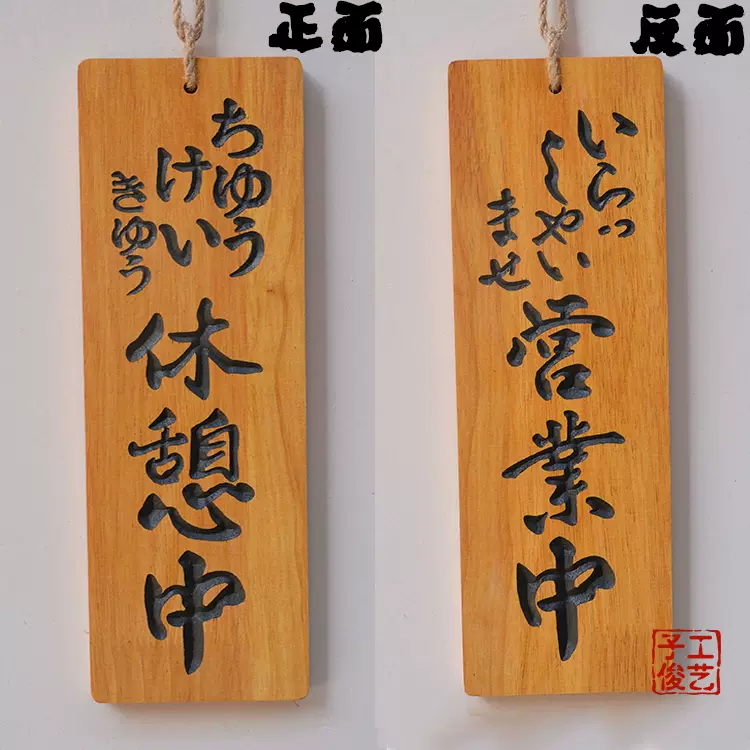 正面
ちゆう
けい
きゆう
休憩中
反面
いらっ
しやい
ませ
営業中
子俊
工艺